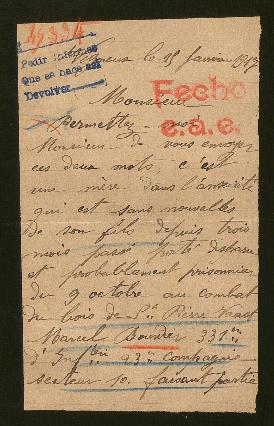 19334
Pedir informes
Que se hace así
Devolver
le 15 Janvier 1917
Monsieur
Fecho
e.a.e.
Permettez - moi
Monsieur de vous envoyer
ces deux mots, c'est
une mère dans l'anxiété
qui est sans nouvelles
de son fils depuis trois
mois passé porté disparu
et probablament prisonnier
du 9 octobre au combat
du bois de St Pierre Vaast
Marcel 331e
d'Infrie 23e compagnie
secteur 10. faisant partie